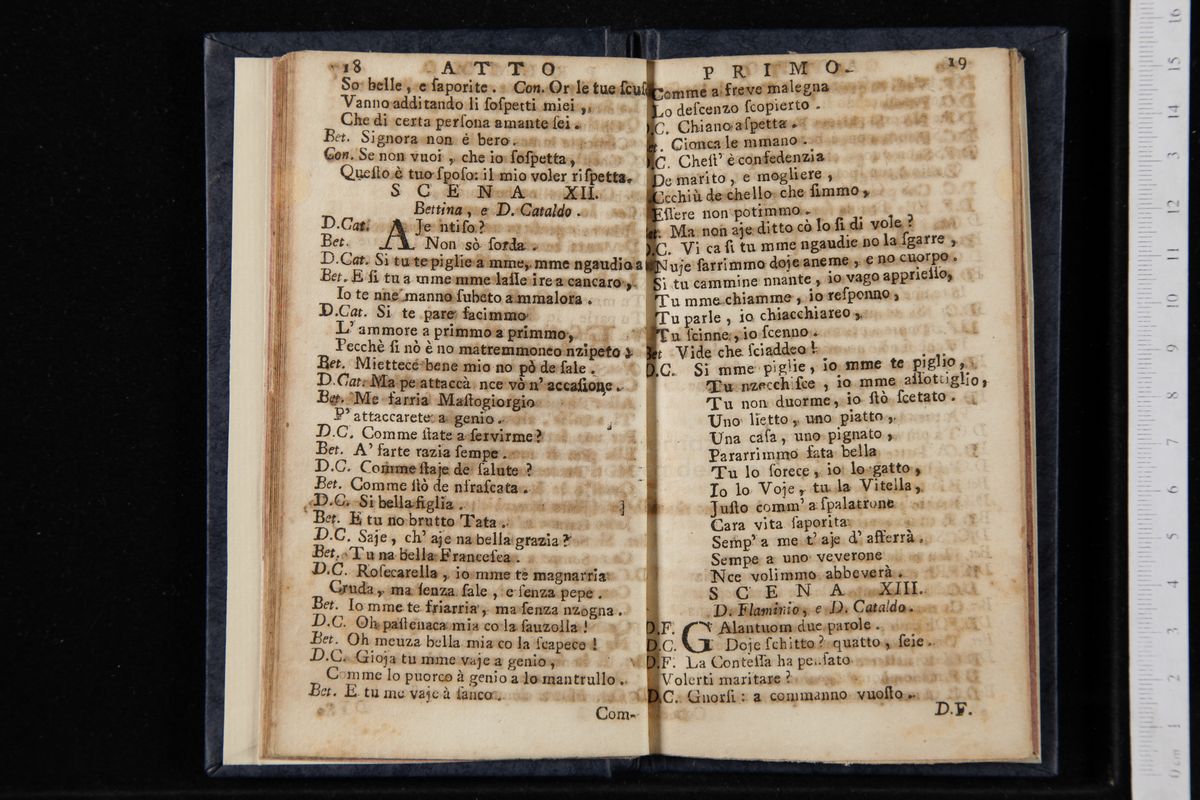 18 ATTO
So belle, e ſaporite. Con. Or le tue ſcuſe
Vanno additando li ſoſpetti miei,
Che di certa perſona amante ſei.
Bet. Signora non è bero.
Con. Se non vuoi, che io ſoſpetta,
Queſto è tuo ſpoſo: il mio voler riſpetta.
SCENA XII.
Bettina, e D. Cataldo.
D.Cat. AJe ntiſo?
Bet. Non sò ſorda.
D.Cat. Si tu te piglie a mme, mme ngaudio a
Bet. E ſi tu a mme mme laſſe ire a cancaro,
Io te nne manno ſubeto a mmalora.
D.Cat. Si te pare facimmo
L'ammore a primmo a primmo,
Pecchè ſi nò è no matremmoneo nzipeto.
Bet. Miettece bene mio no pò de ſale.
D.Cat. Ma pe attaccà nce vò n'accaſione.
Bet. Me farria Maſtogiorgio
P'attaccarete a genio.
D.C. Comme ſtate a ſervirme?
Bet. A' farte razia ſempe.
D.C. Comme ſtaje de ſalute?
Bet. Comme ſtò de nfraſcata.
D.C. Si bella figlia.
Bet. E tu no brutto Tata.
D.C. Saje, ch'aje na bella grazia?
Bet. Tu na bella Franceſca.
D.C. Roſecarella, io mme te magnarria
Cruda, ma ſenza ſale, e ſenza pepe.
Bet. Io mme te friarria, ma ſenza nzogna.
D.C. Oh paſtenaca mia co la ſauzolla!
Bet. Oh meuza bella mia co la ſcapece!
D.C. Gioja tu mme vaje a genio,
Comme lo puorco à genio a lo mantrullo.
Bet. E tu me vaje à ſanco.
Com-
PRIMO. 19
Comme a freve malegna
Lo deſcenzo ſcopierto.
D.C. Chiano aſpetta.
Bet. Cionca le mmano.
D.C. Cheſt'è confedenzia
De marito, e mogliere,
Ccchiù de chello che ſimmo,
Eſſere non potimmo.
Bet. Ma non aje ditto cò lo ſi di vole?
D.C. Vi ca ſi tu mme ngaudie no la ſgarre,
Nuje ſarrimmo doje aneme, e no cuorpo.
Si tu cammine nnante, io vago appriеſſo,
Tu mme chiamme, io reſponno,
Tu parle, io chiacchiareo,
Tu ſcinne, io ſcenno.
Bet Vide che ſciaddeo!
D.C. Si mme piglie, io mme te piglio,
Tu nzecchiſce, io mme aſſottiglio,
Tu non duorme, io ſtò ſcetato.
Uno lietto, uno piatto,
Una caſa, uno pignato,
Pararrimmo fata bella
Tu lo ſorece, io lo gatto,
Io lo Voje, tu la Vitella,
Juſto comm'a ſpalatrone
Cara vita ſaporita
Semp'a me t'aje d'afferrà.
Sempe a uno veverone
Nce volimmo abbeverà.
SCENA XIII.
D. Flaminio, e D. Cataldo.
D.F. GAlantuom due parole.
D.C. Doje ſchitto? quatto, ſeie.
D.F. La Conteſſa ha penſato
Volerti maritare?
D.C. Gnorſi: a commanno vuoſto.
D.F.